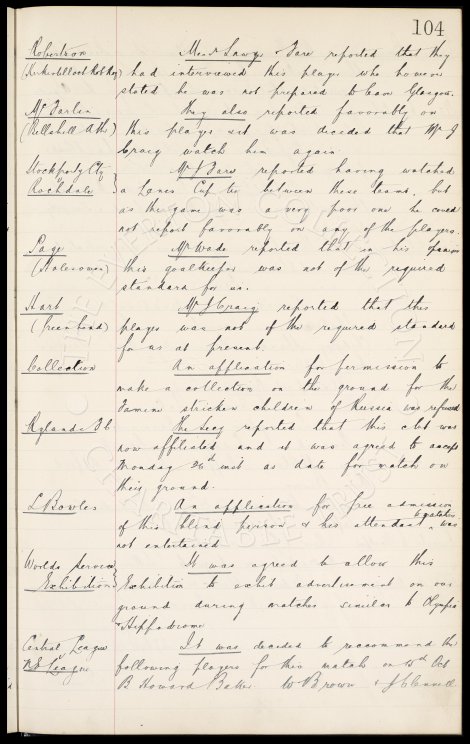 104
Robertson Messrs Sawyer & Fare reported that they
(Kirkintilloch Rob Roy) had interviewed this player who however
stated he was not prepared to leave Glasgow.
McFarlin They also reported favorably on
(Bellshill Aths) this player and was decided that Mr J
Craig watch him again.
Stockport Cty Mr V Fare reported having watched
v Rochdale a Lancs Cup tie between these teams, but
as the game was a very poor one he could
not report favorably on any of the players.
Page Mr Wade reported that in his opinion
this goalkeeper was not of the required
standard for us.
Hart Mr J Craig reported that this
(Greenhead) player was not of the required standard
for us at present.
Collection An application for permission to
make a collection on the ground for the
Famine stricken children of Russia was refused
Rylands F C The Secy reported that this club was
now affiliated and it was agreed to accept
Monday 26th inst as date for match on
their ground.
L Bowles An application for free admission
of this blind person & his attendant to matches was
not entertained
Worlds Service It was agreed to allow this
Exhibition Exhibition to exhibit advertisement on our
ground during matches similar to Olympia
& Hippodrome
Central League It was decided to recommend the
League following players for this match on Oct
B Howard Baker W Brown & J